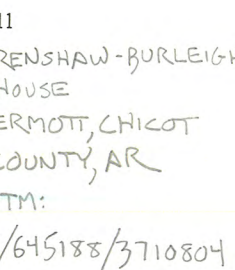 11
RENSHAW-BURLEIGH
HOUSE
ERMOTT, CHICOT
COUNTY, AR
TM:
/645188/3710804